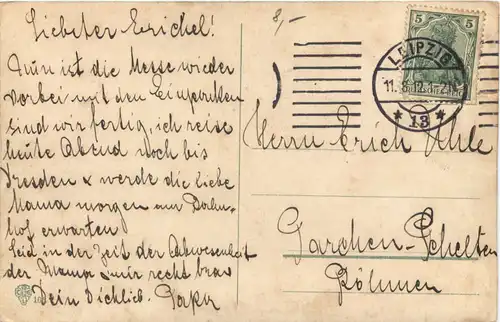 Liebster Erichel!
8,-
Nun ist die Messe wieder
vorbei mit den Einpacken
sind wir fertig, ich reise
heute Abend noch bis
Dresden & werde die liebe
Mama morgen am Bahn-
hof erwarten
Seid in der Zeit der Abwesenheit
der Mama mir recht brav
Dein Dichlieb. Papa
5 5
LEIPZIG
11.8.12.
* 13 *
Herrn Erich Uhle
Böhmen